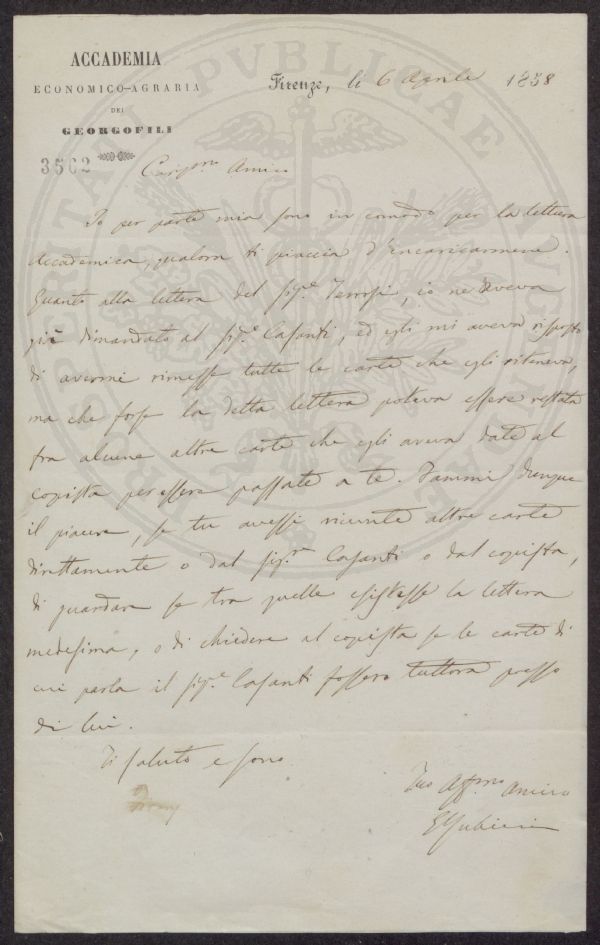 ACCADEMIA
ECONOMICO-AGRARIA
DEI
GEORGOFILI
3562
Firenze, li 6 Aprile 1858
Cariss.mo Amico
Io per parte mia sono in comodo per la lettura
Accademica, qualora ti piaccia d'incaricarmene.
Quanto alla lettera del Sig.e Terrosi, io ne aveva
già dimandato al Sig.e Casanti, ed egli mi aveva risposto
di avermi rimesse tutte le carte che egli riteneva,
ma che forse la detta lettera poteva essere restata
fra alcune altre carte che egli aveva date al
copista per essere passate a te. Fammi dunque
il piacere, se tu avessi ricevute altre carte
direttamente o dal Sig.re Casanti o dal copista,
di guardare se tra quelle esistesse la lettera
medesima, o di chiedere al copista se le carte di
cui parla il Sig.e Casanti fossero tuttora presso
di lui.
Ti saluto e sono
Tuo Aff.mo Amico
PROSPERITATI PVBLICAE AVGENDAE